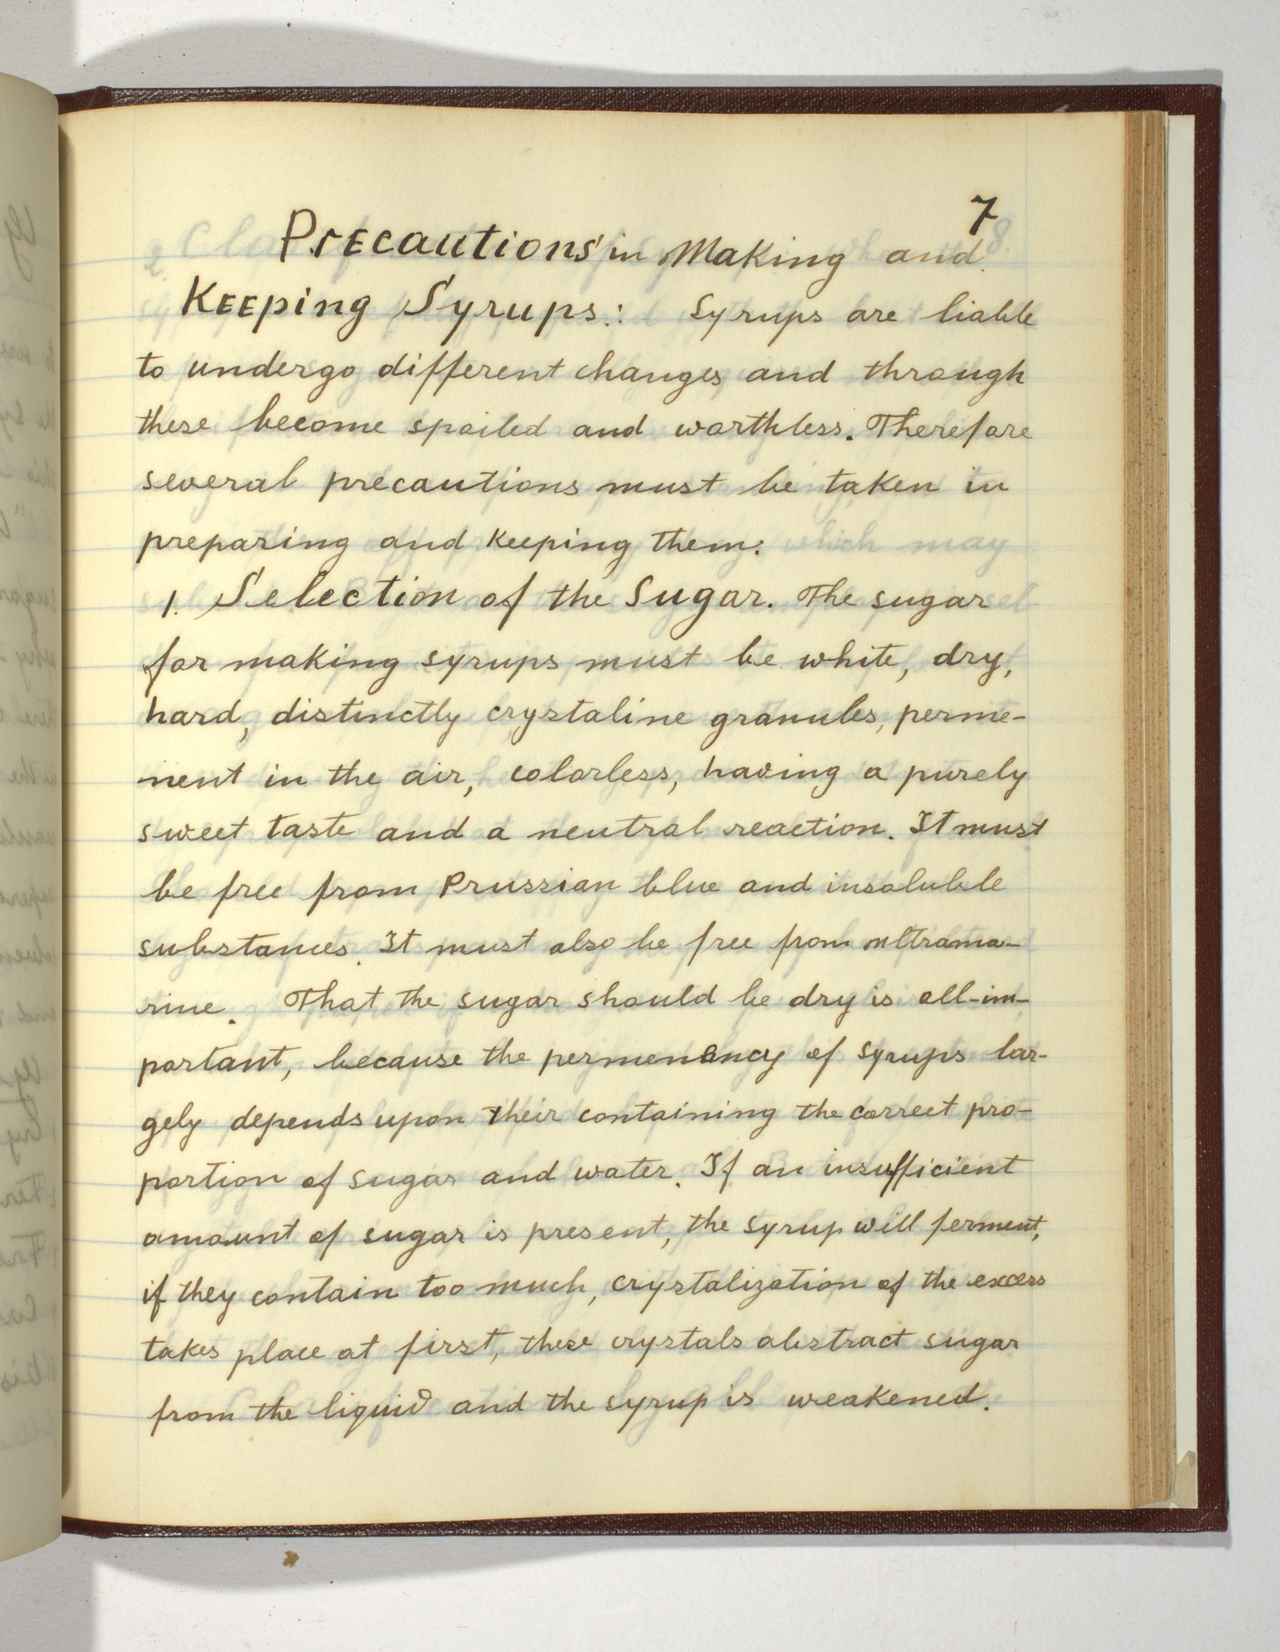 7
Precautions in Making and
Keeping Syrups: Syrups are liable
to undergo different changes and through
these become spoiled and worthless. Therefore
several precautions must be taken in
preparing and keeping them.
1. Selection of the Sugar. The sugar
for making syrups must be white, dry,
hard, distinctly crystaline granules, perme-
nent in the air, colorless, having a purely
sweet taste and a neutral reaction. It must
be free from Prussian blue and insoluble
substances. It must also be free from ultrama-
rine. That the sugar should be dry is all-im-
portant, because the permenancy of syrups lar-
gely depends upon their containing the correct pro-
portion of sugar and water. If an insufficient
amount of sugar is present, the syrup will ferment,
if they contain too much, crystalization of the excess
takes place at first, these crystals abstract sugar
from the liquid and the syrup is weakened.